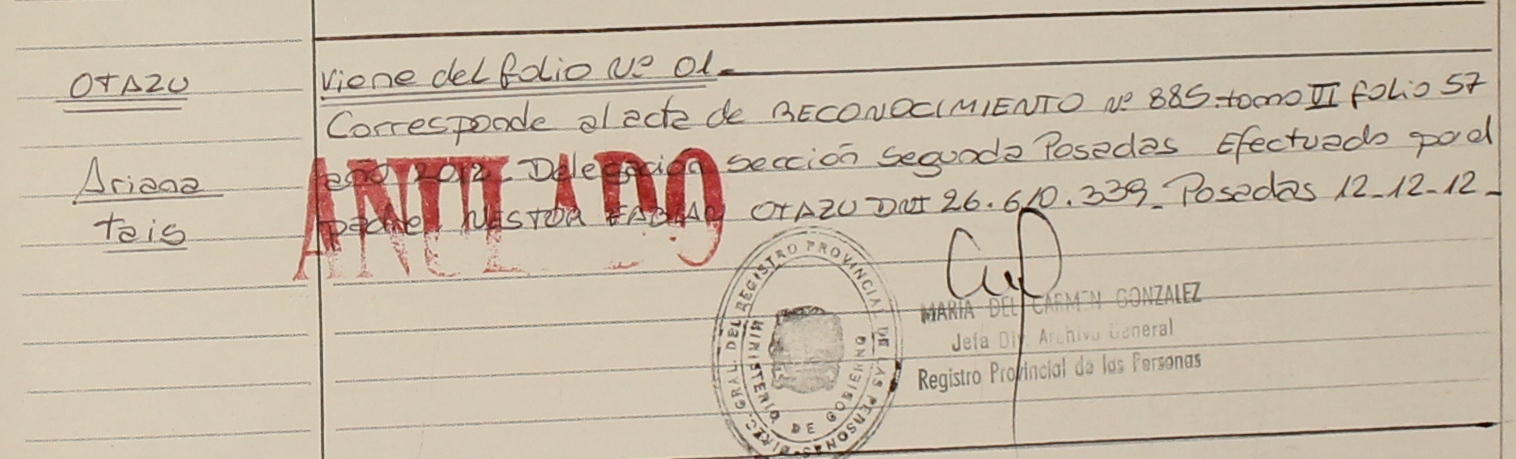 OTAZU
Ariana
tais
Viene del folio Nº 01.
Corresponde al acta de RECONOCIMIENTO Nº 885 tomo II folio 57
año 2012 Delegación sección segunda Posadas Efectuado por el
padre NESTOR FABIAN OTAZU DNI 26.610.339_ Posadas 12-12-12_
ANULADO
DIREC. GRAL. DEL REGISTRO PROVINCIAL DE LAS PERSONAS
MINISTERIO DE GOBIERNO
MARIA DEL CARMEN GONZALEZ
Jefa Div. Archivo General
Registro Provincial de las Personas